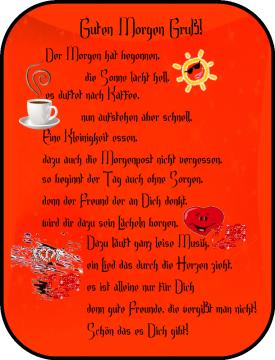 Guten Morgen Gruß!
Der Morgen hat begonnen,
die Sonne lacht hell,
es duftet nach Kaffee,
nun aufstehen aber schnell.
Eine Kleinigkeit essen,
dazu auch die Morgenpost nicht vergessen,
so beginnt der Tag auch ohne Sorgen,
denn der Freund der an Dich denkt,
wird dir dazu sein Lächeln borgen.
Dazu läuft ganz leise Musik,
ein Lied das durch die Herzen zieht,
es ist alleine nur für Dich
denn gute Freunde, die vergißt man nicht!
Schön das es Dich gibt!